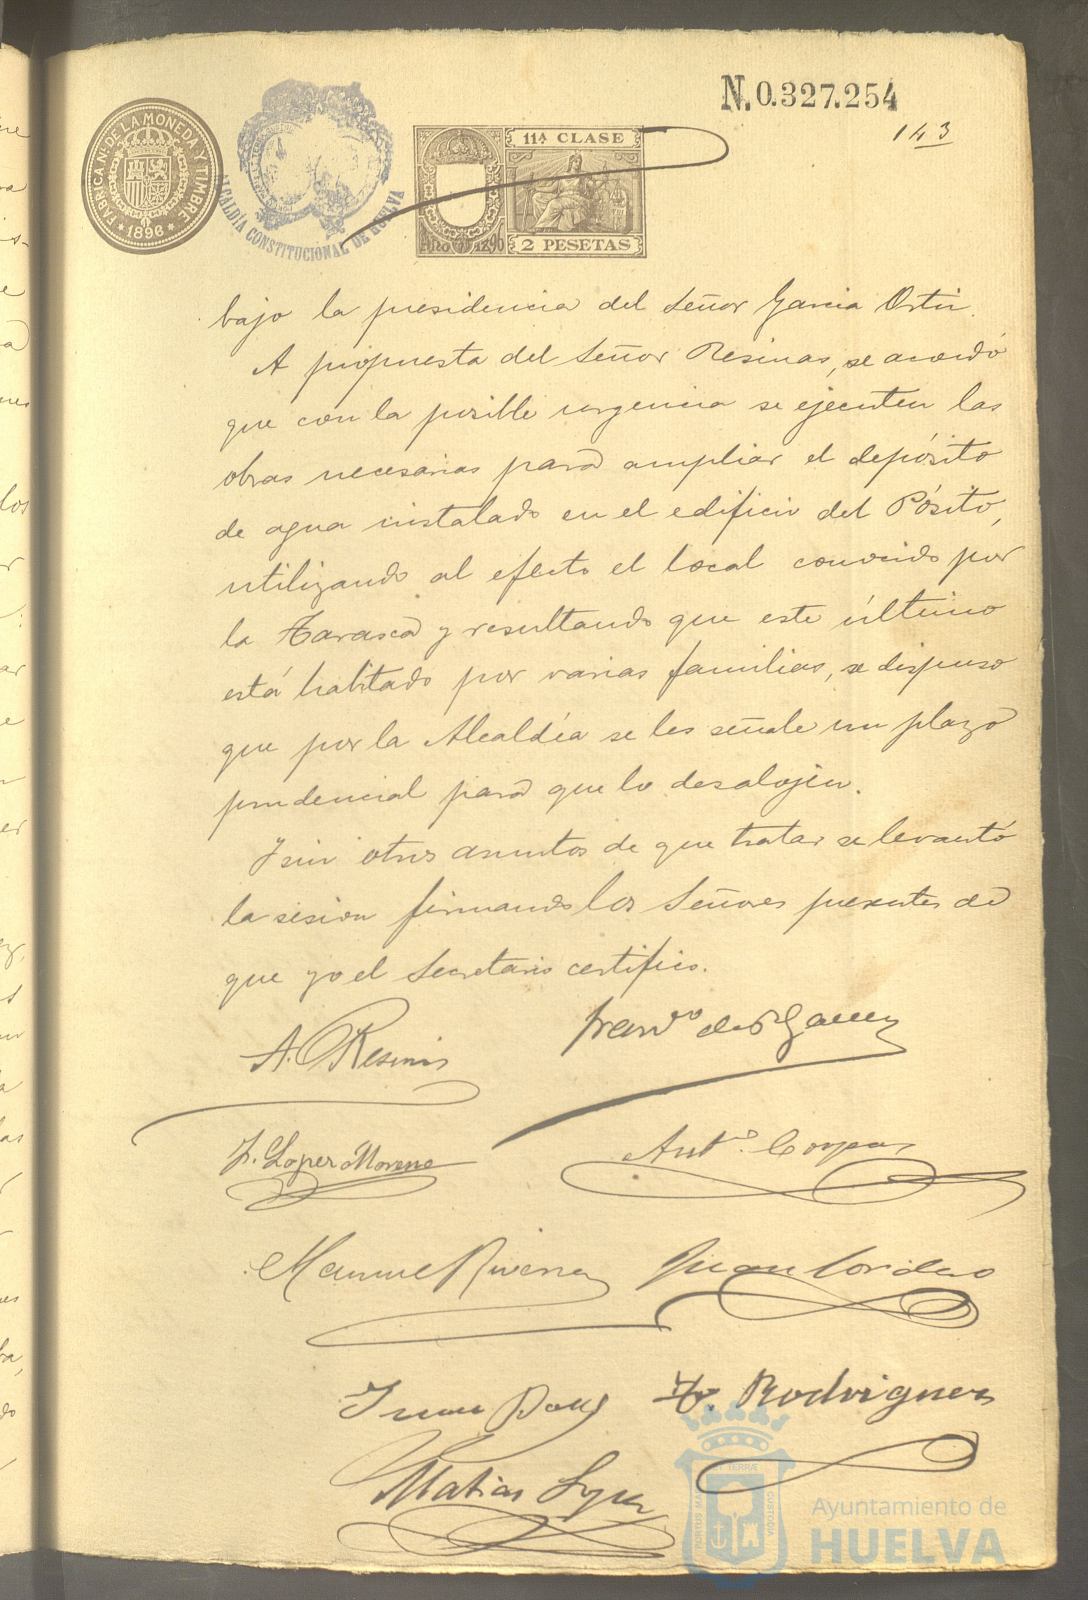 N.0.327.254
143
FABRICA N. DE LA MONEDA Y TIMBRE
1896
ALCALDÍA CONSTITUCIONAL DE HUELVA
11ª CLASE
2 PESETAS
bajo la presidencia del Señor Garcia Ortiz.
A propuesta del Señor Resinas, se acordó
que con la posible urgencia se ejecuten las
obras necesarias para ampliar el depósito
de agua instalado en el edificio del Pósito,
utilizando al efecto el local conocido por
la Tarasca y resultando que este último
está habitado por varias familias, se dispuso
que por la Alcaldía se les señale un plazo
prudencial para que lo desalojen.
Y sin otros asuntos de que tratar se levantó
la sesion firmando los Señores presentes de
que yo el Secretario certifico.
A. Resinas
Franco de P
J. Lopez Moreno
Anto. Corpas
Manuel Rivera
Juan Cordero
Juan
Rodriguez
Matias Lopez
Ayuntamiento de
HUELVA